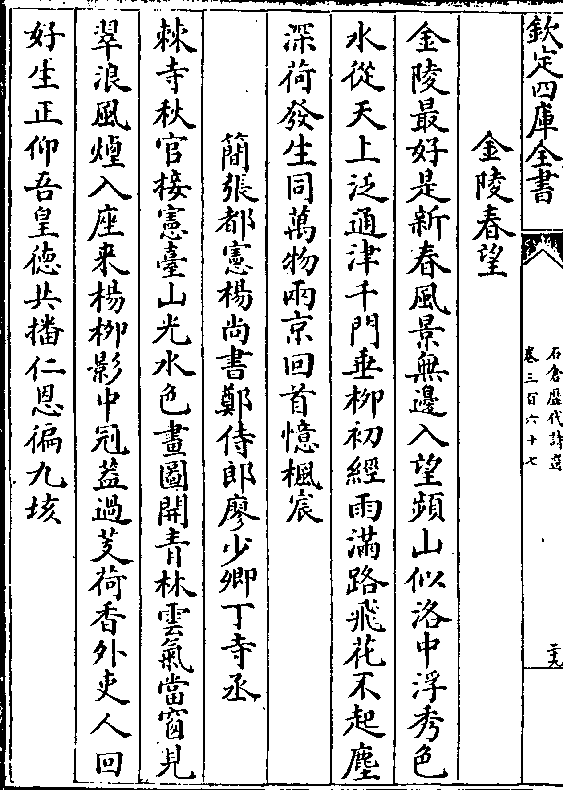 欽定四庫全書
石倉歷代詩選
卷三百六十七
二十九
金陵春望
金陵最好是新春風景無邊入望頻山似洛中浮秀色
水從天上泛通津千門垂柳初經雨滿路飛花不起塵
深荷發生同萬物兩京回首憶楓宸
簡張都憲楊尚書鄭侍郎廖少卿丁寺丞
棘寺秋官接憲臺山光水色畫圖開青林雲氣當窗見
翠浪風煙入座来楊柳影中冠葢過芰荷香外吏人回
好生正仰吾皇徳共播仁恩徧九垓